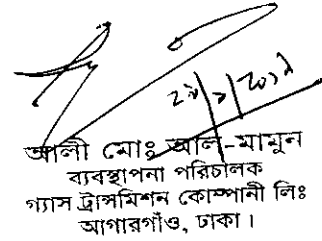 আলী মোঃ আল-মামুন
ব্যবস্থাপনা পরিচালক
গ্যাস ট্রান্সমিশন কোম্পানী লিঃ
আগারগাঁও, ঢাকা।